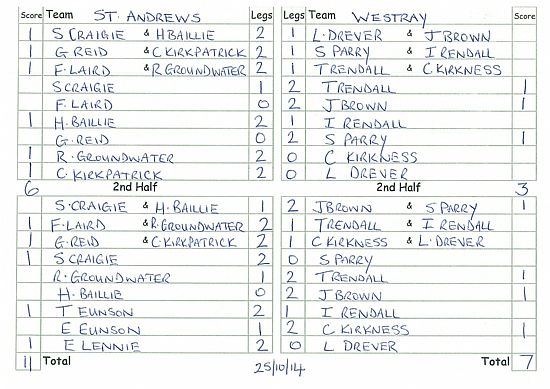 Score Team ST. ANDREWS Legs Legs Team WESTRAY Score
1 S CRAIGIE & H BAILLIE 2 1 L. DREVER & J BROWN
1 G. REID & C KIRKPATRICK 2 1 S PARRY & I RENDALL
1 F. LAIRD & R GROUNDWATER 2 1 T RENDALL & C KIRKNESS
S CRAIGIE 1 2 T RENDALL 1
F. LAIRD 0 2 J BROWN 1
1 H. BAILLIE 2 1 I RENDALL
G. REID 0 2 S PARRY 1
1 R. GROUNDWATER 2 0 C KIRKNESS
1 C. KIRKPATRICK 2 0 L DREVER
6 2nd Half 2nd Half 3
S. CRAIGIE & H. BAILLIE 1 2 J BROWN & S PARRY 1
1 F. LAIRD & R. GROUNDWATER 2 1 T RENDALL & I RENDALL
1 G. REID & C KIRKPATRICK 2 1 C KIRKNESS & L. DREVER
1 S CRAIGIE 2 0 S PARRY
R. GROUNDWATER 1 2 T RENDALL 1
H. BAILLIE 0 2 J BROWN 1
1 T EUNSON 2 1 I RENDALL
E EUNSON 1 2 C KIRKNESS 1
1 E LENNIE 2 0 L DREVER
11 Total 25/10/14 Total 7